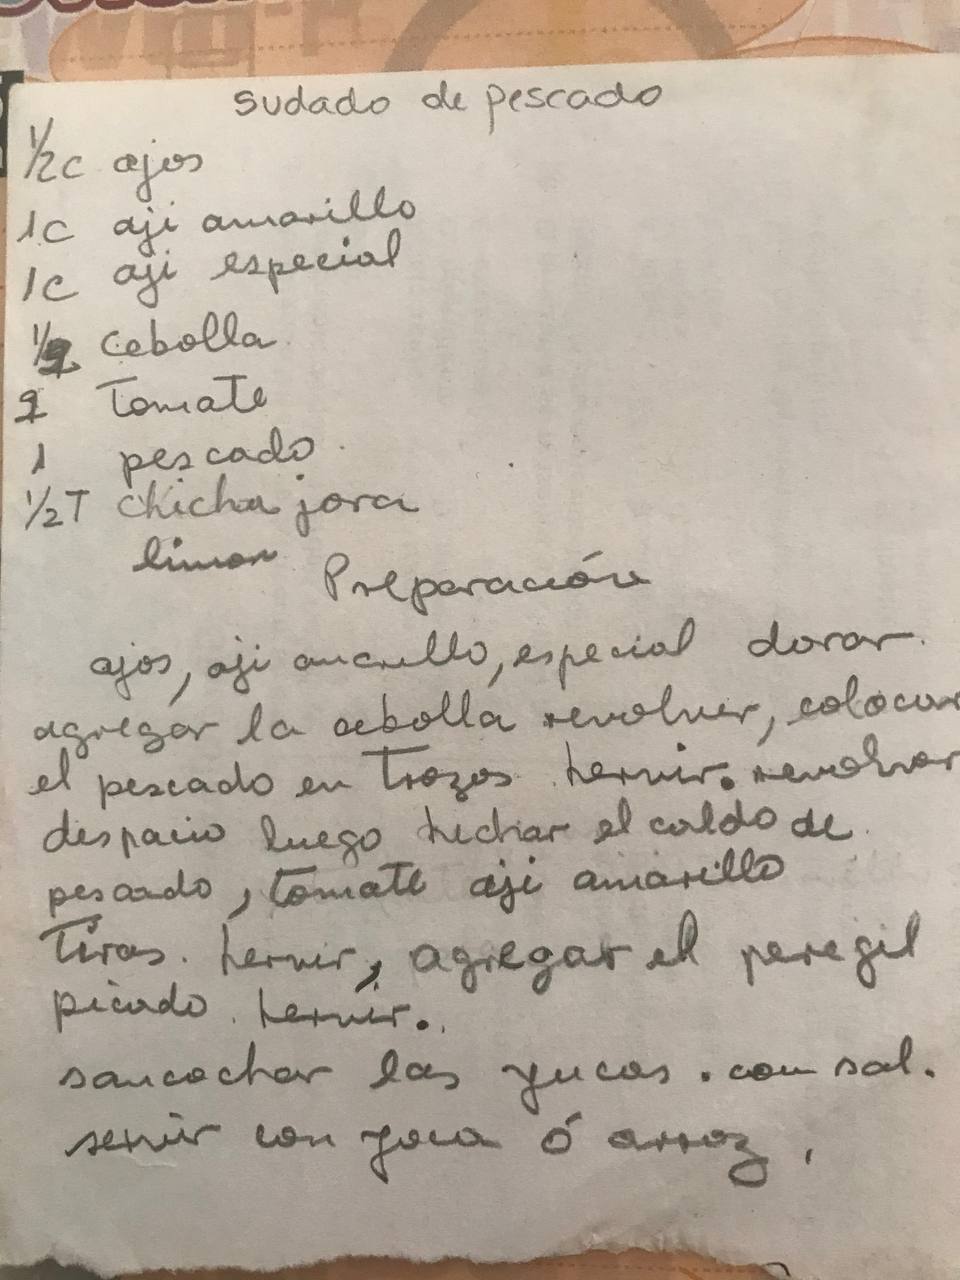 sudado de pescado
1/2 c ajos
1c aji amarillo
1c aji especial
1/2 cebolla
1 Tomate
1 pescado.
1/2 T chicha jora
limon
Preparación
ajos, aji amarillo, especial dorar.
agregar la cebolla revolver, colocar
el pescado en Trozos. hervir. revolver
despacio luego hechar el caldo de
pescado, tomate aji amarillo
Tiras. hervir, agregar el peregil
picado. hervir.
sancochar las yucas. con sal.
servir con yuca ó arroz,